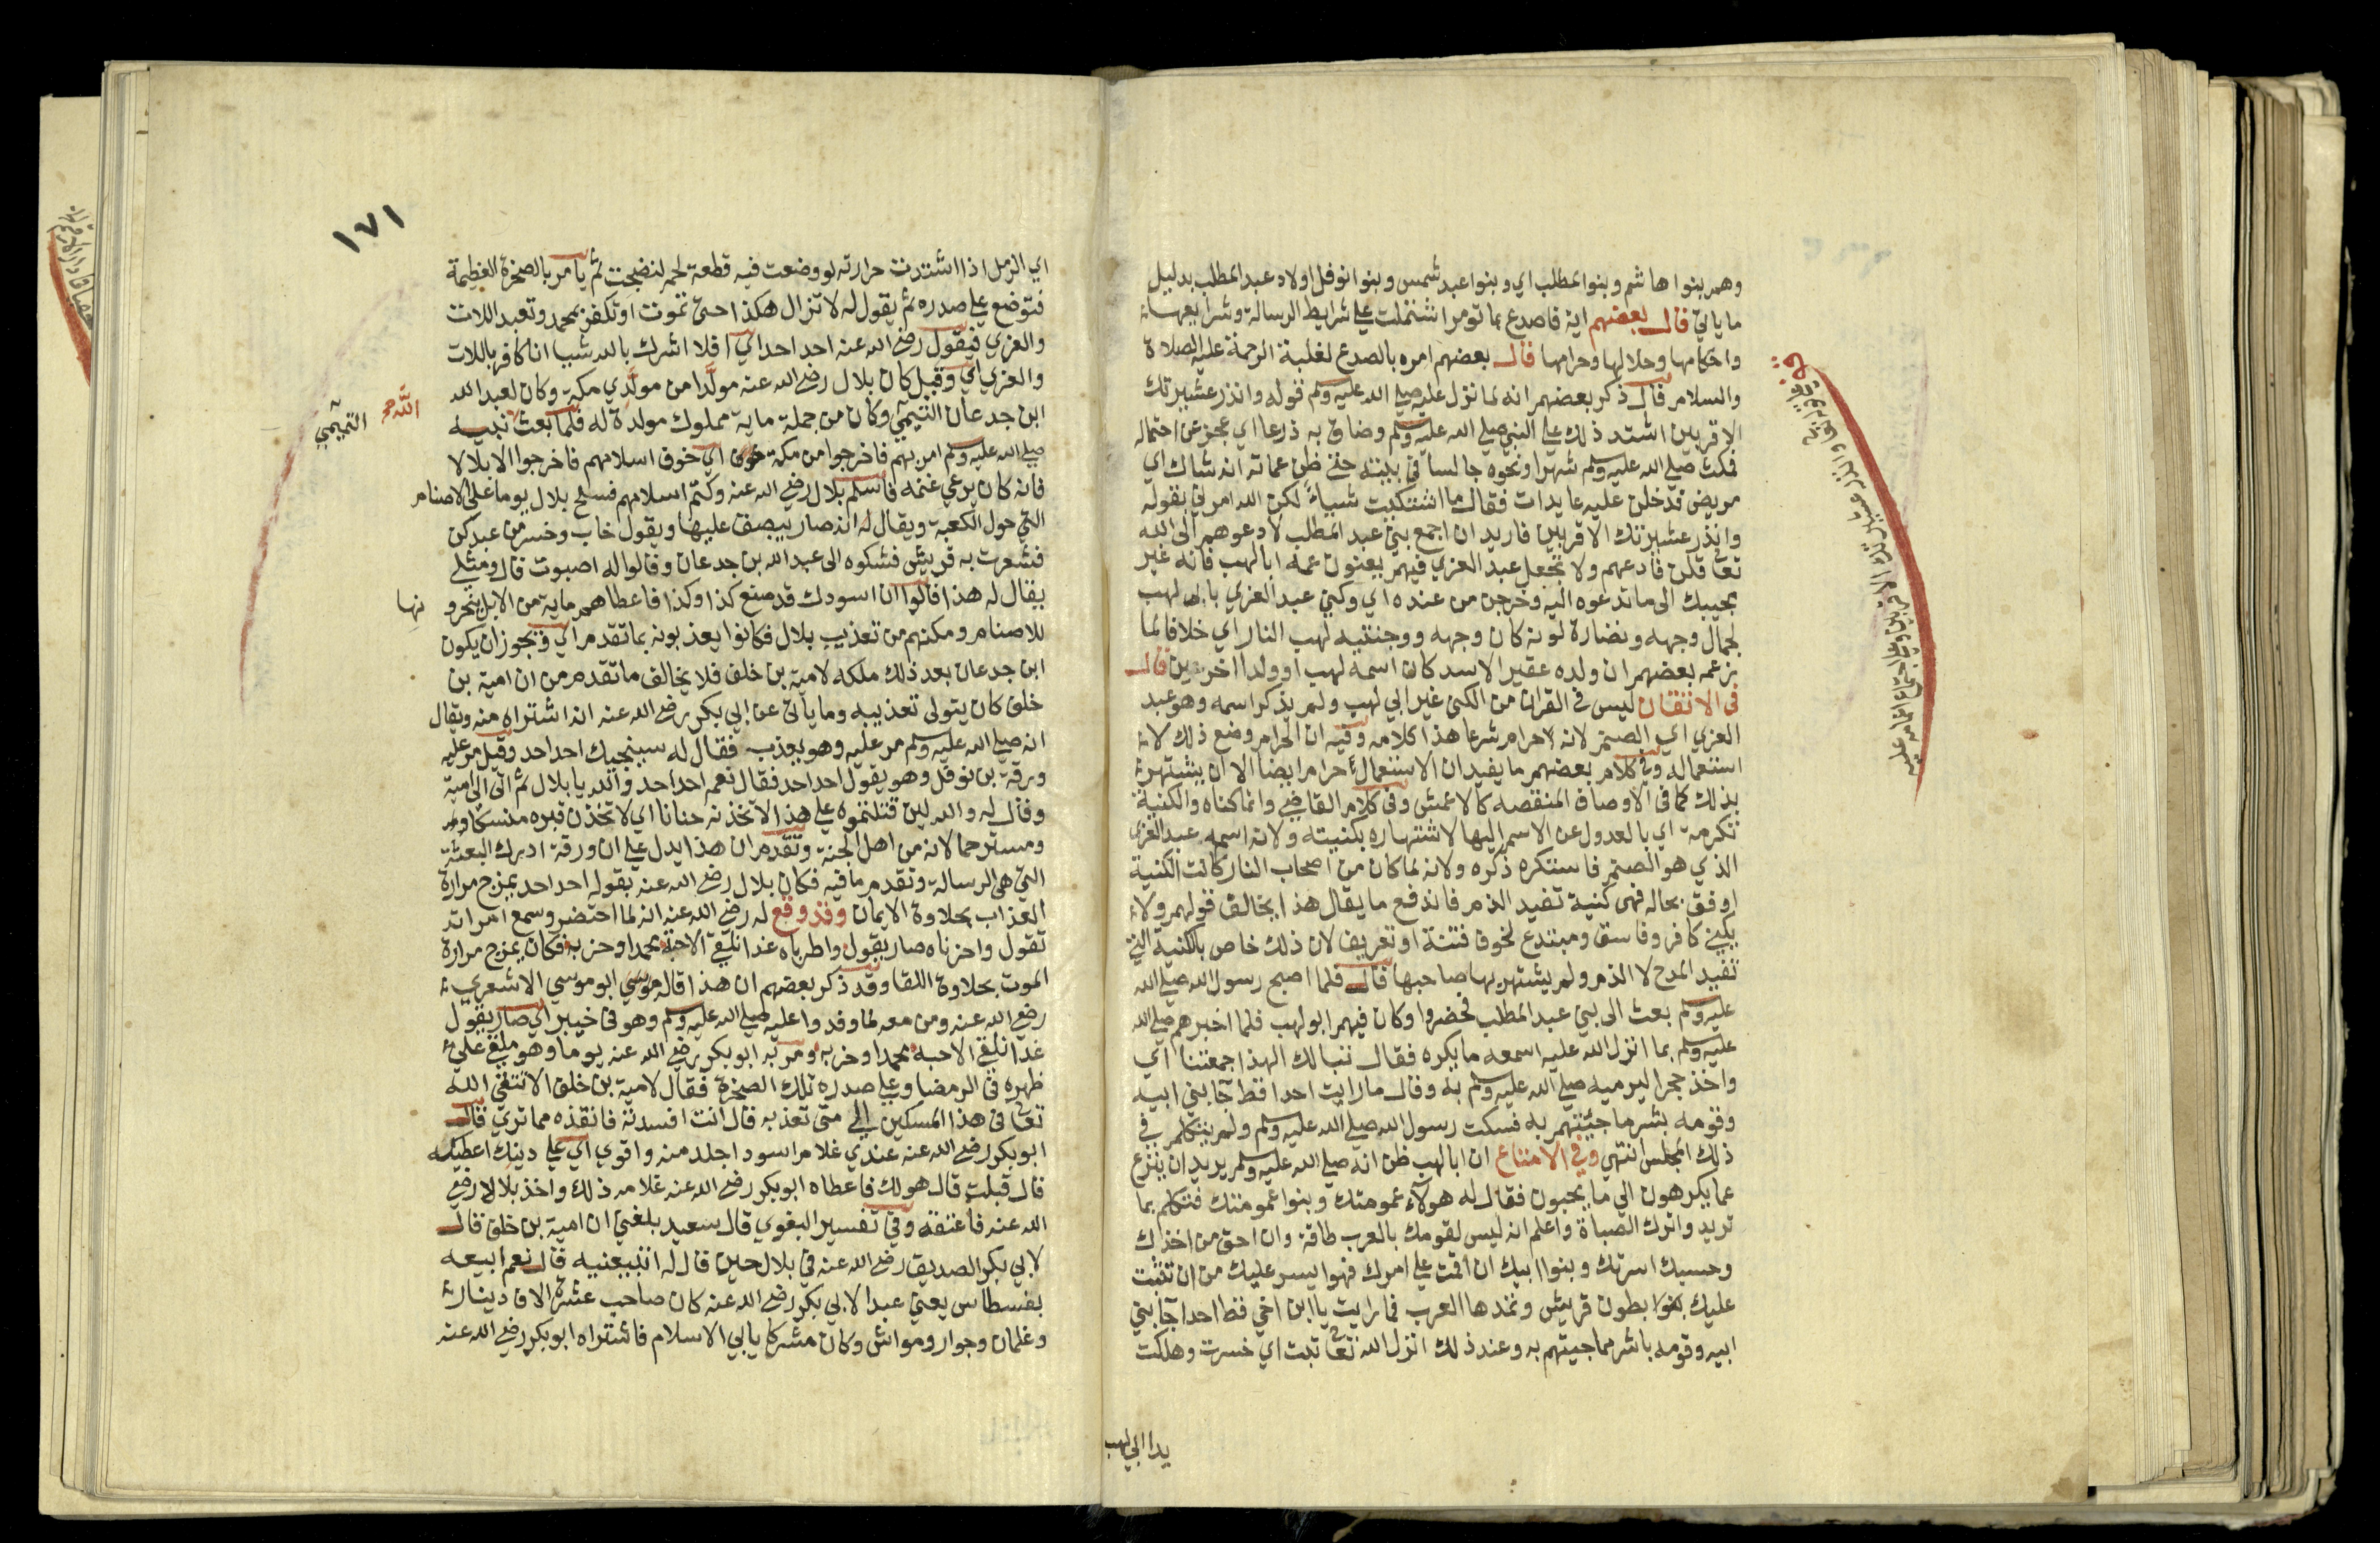 وهم بنوا هاشم وبنوا المطلب اي وبنوا عبد شمس وبنوا نوفل اولاد عبد المطلب بدليل
ما ياتي قال بعضهم اية فاصدع بما تومر اشتملت علي شرايط الرسالة وشرايعها
واحكامها وحلالها وحرامها قال بعضهم امره بالصدع لغلبة الرحمة عليه الصلاة
والسلام قال ذكر بعضهم انه لما نزل عليه صلي الله عليه وسلم قوله وانذر عشيرتك
الاقربين اشتد ذلك علي النبي صلي الله عليه وسلم وضاق به ذرعا اي عجز عن احتماله
فمكث صلي الله عليه وسلم شهرا ونحوه جالسا في بيته حتي ظن عماته انه شاك اي
مريض فدخلن عليه عايدات فقال ما اشتكيت شياء لكن الله امرني بقوله
وانذر عشيرتك الاقربين فاريد ان اجمع بني عبد المطلب لادعوهم الى الله
تعا قلن فادعهم ولا تجعل عبد العزي فيهم يعنون عمه ابا لهب فانه غير
مجيبك الى ما تدعوه اليه وخرجن من عنده اي وكني عبد العزي بابي لهب
لجمال وجهه ونضارة لونه كان وجهه ووجنتيه لهب النار اي خلافا لما
يزعمه بعضهم ان ولده عقير الاسد كان اسمه لهب او ولدا اخر غيره قال
في الاتقان ليس في القران من الكنى غير ابي لهب ولم يذكر اسمه وهو عبد
العزي اي الصنم لانه حرام شرعا هذا كلامه وفيه ان الحرام وضع ذلك لا
استعماله وفي كلام بعضهم ما يفيد ان الاستعمال حرام ايضا الا ان يشتهر
بذلك كما في الاوصاف المنقصة كالاعمش وفي كلام القاضي وانما كناه والكنية
تكرمة اي بالعدول عن الاسم اليها لاشتهاره بكنيته ولان اسمه عبد العزي
الذي هو الصنم فاستكره ذكره ولانه لما كان من اصحاب النار كانت الكنية
اوفق بحاله فهي كنية تفيد الذم فاندفع ما يقال هذا يخالف قولهم ولا
يكني كافر وفاسق ومبتدع لخوف فتنة او تعريف لان ذلك خاص بالكنية التي
تفيد المدح لا الذم ولم يشتهر بها صاحبها قال فلما اصبح رسول الله صلي الله
عليه وسلم بعث الى بني عبد المطلب فحضروا وكان فيهم ابو لهب فلما اخبرهم صلي الله
عليه وسلم بما انزل الله عليه اسمعه ما يكره فقال تبا لك الهذا جمعتنا اي
واخذ حجرا ليرميه صلي الله عليه وسلم به وقال ما رايت احدا قط جا بني ابيه
وقومه بشر ما جئتهم به فسكت رسول الله صلي الله عليه وسلم ولم يتكلم في
ذلك المجلس انتهي وفي الامتاع ان ابا لهب ظن انه صلي الله عليه وسلم يريد ان ينزع
عما يكرهون الي ما يحبون فقال له هولاء عمومتك وبنوا عمومتك فتكلم بما
تريد واترك الصباة واعلم انه ليس لقومك بالعرب طاقة وان احق من اخذك
وحسبك اسرتك وبنوا ابيك ان اقمت علي امرك فهوا يسر عليك من ان تثبت
عليك بطون قريش وتمدها العرب فما رايت يا ابن اخي قط احدا جا بني
ابيه وقومه باشر مما جيتهم به وعند ذلك انزل الله تعا تبت اي خسرت وهلكت
يدا ابي لهب
وانذر عشيرتك الاقربين
١٧١
اي الرمل اذا اشتدت حرارته لو وضعت فيه قطعة لحم لنضجت ثم يامر بالصخرة العظيمة
فتوضع علي صدره ثم يقول له لا تزال هكذا حتي تموت او تكفر بمحمد وتعبد اللات
والعزي فيقول رضي الله عنه احد احد اي افلا اشرك بالله شيا انا كافر باللات
والعزي اي وقيل كان بلال رضي الله عنه مولدا من مولدي مكة وكان لعبد الله
ابن جدعان التيمي وكان من جملة ماية مملوك مولدة له فلما بعث نبيه
الله
التميمي
صلي الله عليه وسلم امر بهم فاخرجوا من مكة خوف اي خوف اسلامهم فاخرجوا الا بلالا
فانه كان يرعي غنمه فاسلم بلال رضي الله عنه وكتم اسلامهم فسلح بلال يوما علي الاصنام
التي حول الكعبة ويقال له انه صار يبصق عليها ويقول خاب وخسر من عبدكن
فشعرت به قريش فشكوه الى عبد الله بن جدعان وقالوا له اصبوت قال ومثلي
يقال له هذا قالوا ان اسودك قد صنع كذا وكذا فاعطاهم ماية من الابل ينحرونها
للاصنام ومكنهم من تعذيب بلال فكانوا يعذبونه بما تقدم اي ويجوز ان يكون
ابن جدعان بعد ذلك ملكه لامية بن خلف فلا يخالف ما تقدم من ان امية بن
خلف كان يتولى تعذيبه وما ياتي عن ابي بكر رضي الله عنه انه اشتراه منه ويقال
انه صلي الله عليه وسلم مر عليه وهو يعذب فقال له سينجيك احد احد وقيل مر عليه
ورقة بن نوفل وهو يقول احد احد فقال نعم احد احد والله يا بلال ثم اتي الي امية
وقال له والله لين قتلتموه علي هذا لاتخذنه حنانا اي لاتخذن قبره منسكا
ومسترحما لانه من اهل الجنة وتقدم ان هذا يدل علي ان ورقة ادرك البعثة
التي هي الرسالة وتقدم ما فيه فكان بلال رضي الله عنه بقوله احد احد يمزج مرارة
العذاب بحلاوة الايمان وقد وقع له رضي الله عنه انه لما احتضر وسمع امراته
تقول واحزناه صار يقول واطرباه غدا نلقي الاحبة محمدا وحزبه فكان يمزج مرارة
الموت بحلاوة اللقا وقد ذكر بعضهم ان هذا قاله موسي ابو موسي الاشعري
رضي الله عنه ومن معه لما وفدوا عليه صلي الله عليه وسلم وهو في خيبر اي صار يقول
غدا نلقي الاحبه محمدا وحزبه ومر به ابو بكر رضي الله عنه يوما وهو ملقي علي
ظهره في الرمضا وعلي صدره تلك الصخرة فقال لامية بن خلف الا تتقي الله
تعا في هذا المسكين الي متي تعذبه قال انت افسدته فانقذه مما تري قال
ابو بكر رضي الله عنه عندي غلام اسود اجلد منه واقوي اي علي دينك اعطيكه
قال قبلت قال هو لك فاعطاه ابو بكر رضي الله عنه غلامه ذلك واخذ بلالا رضي
الله عنه فاعتقه وفي تفسير البغوي قال سعيد بلغني ان امية بن خلف قال
لابي بكر الصديق رضي الله عنه في بلال حين قال له اتبيعنيه قال نعم ابيعه
بفسطاس يعني عبدا لابي بكر رضي الله عنه كان صاحب عشرة الاف دينار
وغلمان وجوار ومواش وكان مشركا يابي الاسلام فاشتراه ابو بكر رضي الله عنه